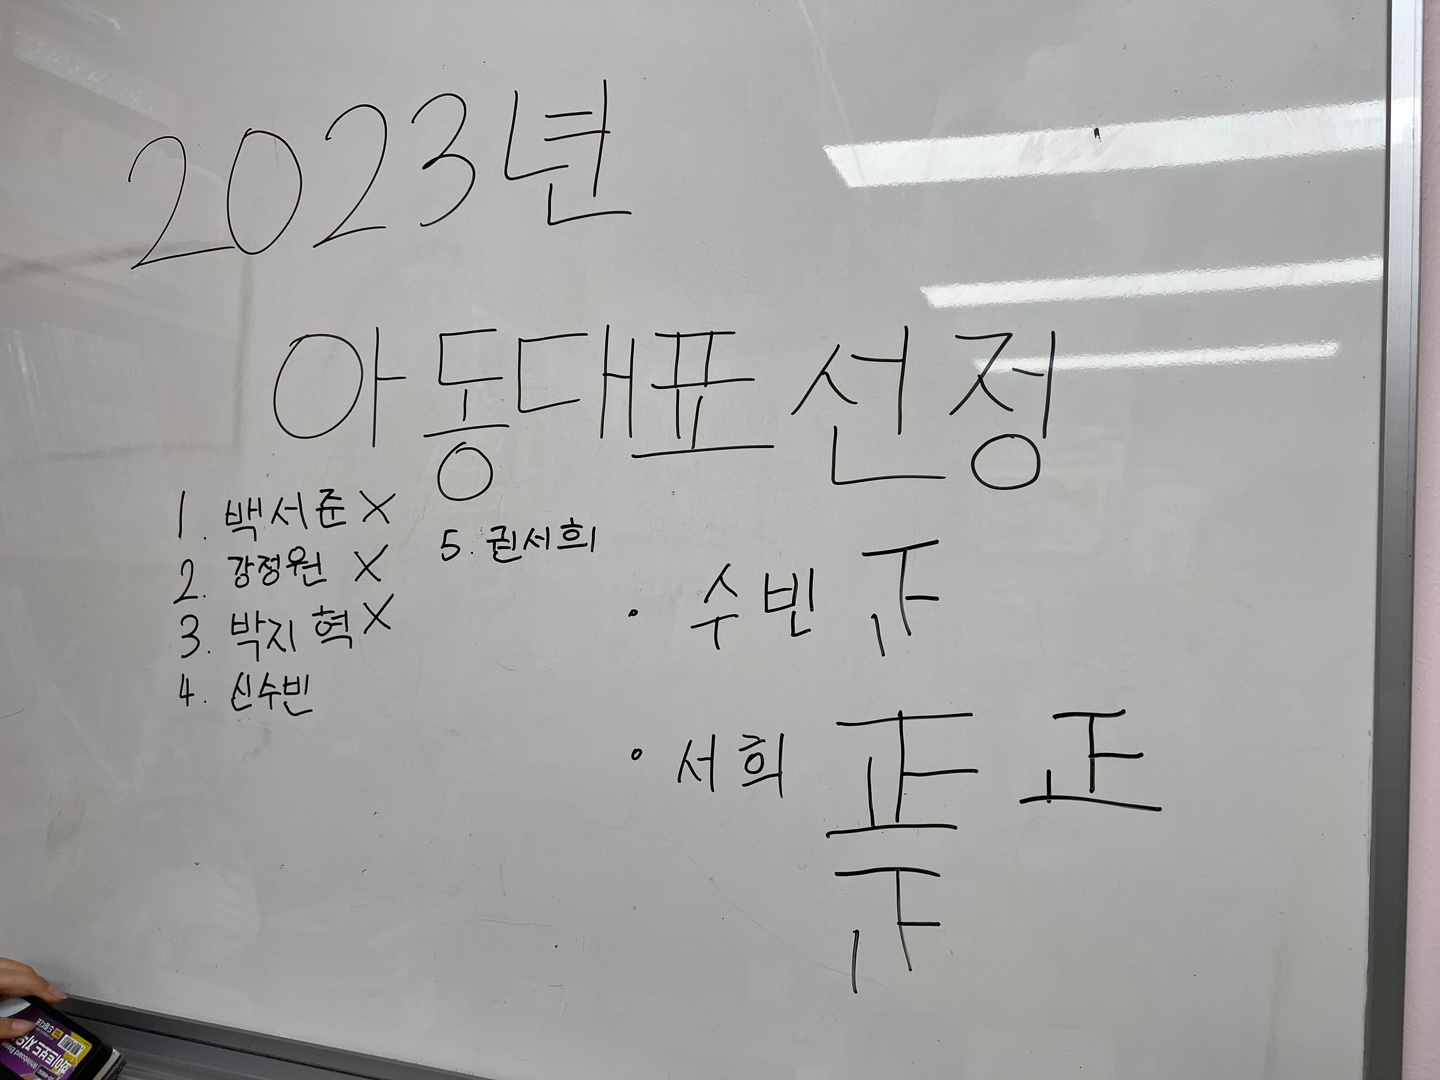 2023년
아동대표 선정
1. 백서준 X
2. 강정원 X
3. 박지혁 X
4. 신수빈
5. 권서희
• 수빈
• 서희 正 正